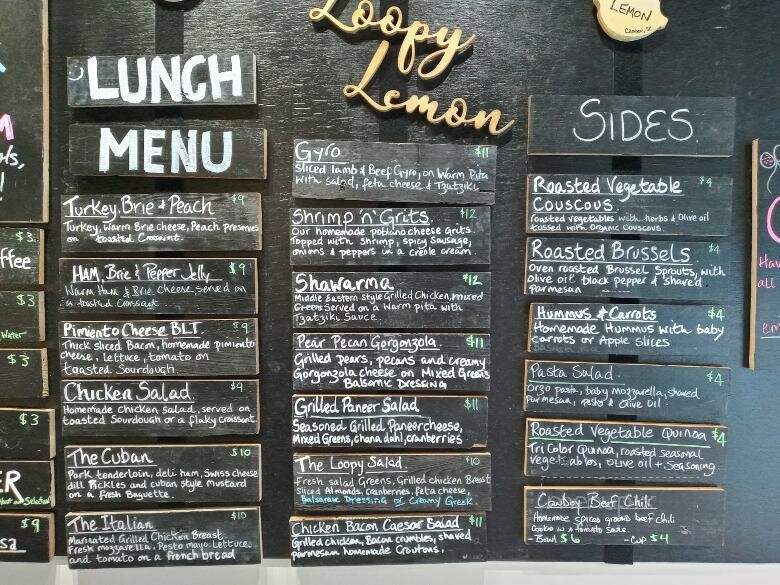 Loopy
Lemon
LEMON
LUNCH
MENU
Turkey, Brie & Peach $9
Turkey, Warm Brie cheese, Peach preserves
on toasted Croissant.
HAM, Brie, & Pepper Jelly $9
Warm Ham & Brie cheese served on
a toasted Croissant.
Pimiento Cheese BLT. $9
Thick sliced Bacon, homemade pimiento
cheese, lettuce, tomato on
toasted Sourdough.
Chicken Salad $9
Homemade chicken salad, served on
toasted Sourdough or a flaky croissant
The Cuban $10
Pork tenderloin, deli ham, Swiss cheese
dill Pickles and cuban style mustard
on a fresh Baguette.
The Italian $10
Marinated Grilled Chicken Breast
Fresh mozzarella, Pesto mayo, Lettuce
and tomato on a french bread
Gyro $11
Sliced lamb & Beef Gyro, on Warm Pita
with salad, feta cheese & Tzatziki
Shrimp 'n' Grits. $12
Our homemade poblano cheese grits.
Topped with shrimp, spicy sausage,
onions & peppers in a creole cream.
Shawarma $12
Middle Eastern Style Grilled Chicken, mixed
Greens Served on a Warm pita with
Tzatziki Sauce.
Pear Pecan Gorgonzola. $11
Grilled pears, pecans and creamy
Gorgonzola cheese on Mixed Greens
Balsamic Dressing
Grilled Paneer Salad $11
Seasoned Grilled Paneer cheese,
Mixed Greens, chana dahl, cranberries
The Loopy Salad. $10
Fresh salad Greens, Grilled chicken Breast
Sliced Almonds, cranberries, feta cheese,
Balsamic Dressing or Creamy Greek
Chicken Bacon Caesar Salad $11
Grilled chicken, Bacon crumbles, shaved
parmesan homemade Croutons.
SIDES.
Roasted Vegetable $4
Couscous.
roasted vegetables with herbs & Olive oil
tossed with Organic Couscous.
Roasted Brussels. $4
Oven roasted Brussel Sprouts, with
Olive oil black pepper & shaved
Parmesan
Hummus & Carrots $4
Homemade Hummus with baby
carrots or Apple slices
Pasta Salad. $4
Orzo pasta, baby mozzarella, shaved
Parmesan, pesto & Olive oil.
Roasted Vegetable Quinoa $4
Tri Color Quinoa, roasted seasonal
vegetables, olive oil + Seasoning.
Cowboy Beef Chili
Homemade spiced ground beef chili
Cooked in a tomato Sauce.
- Bowl $6 - Cup $4
$3
ffee
$3
Water
$3
$3
ER
Selection
$9
sa
Hav
all
em